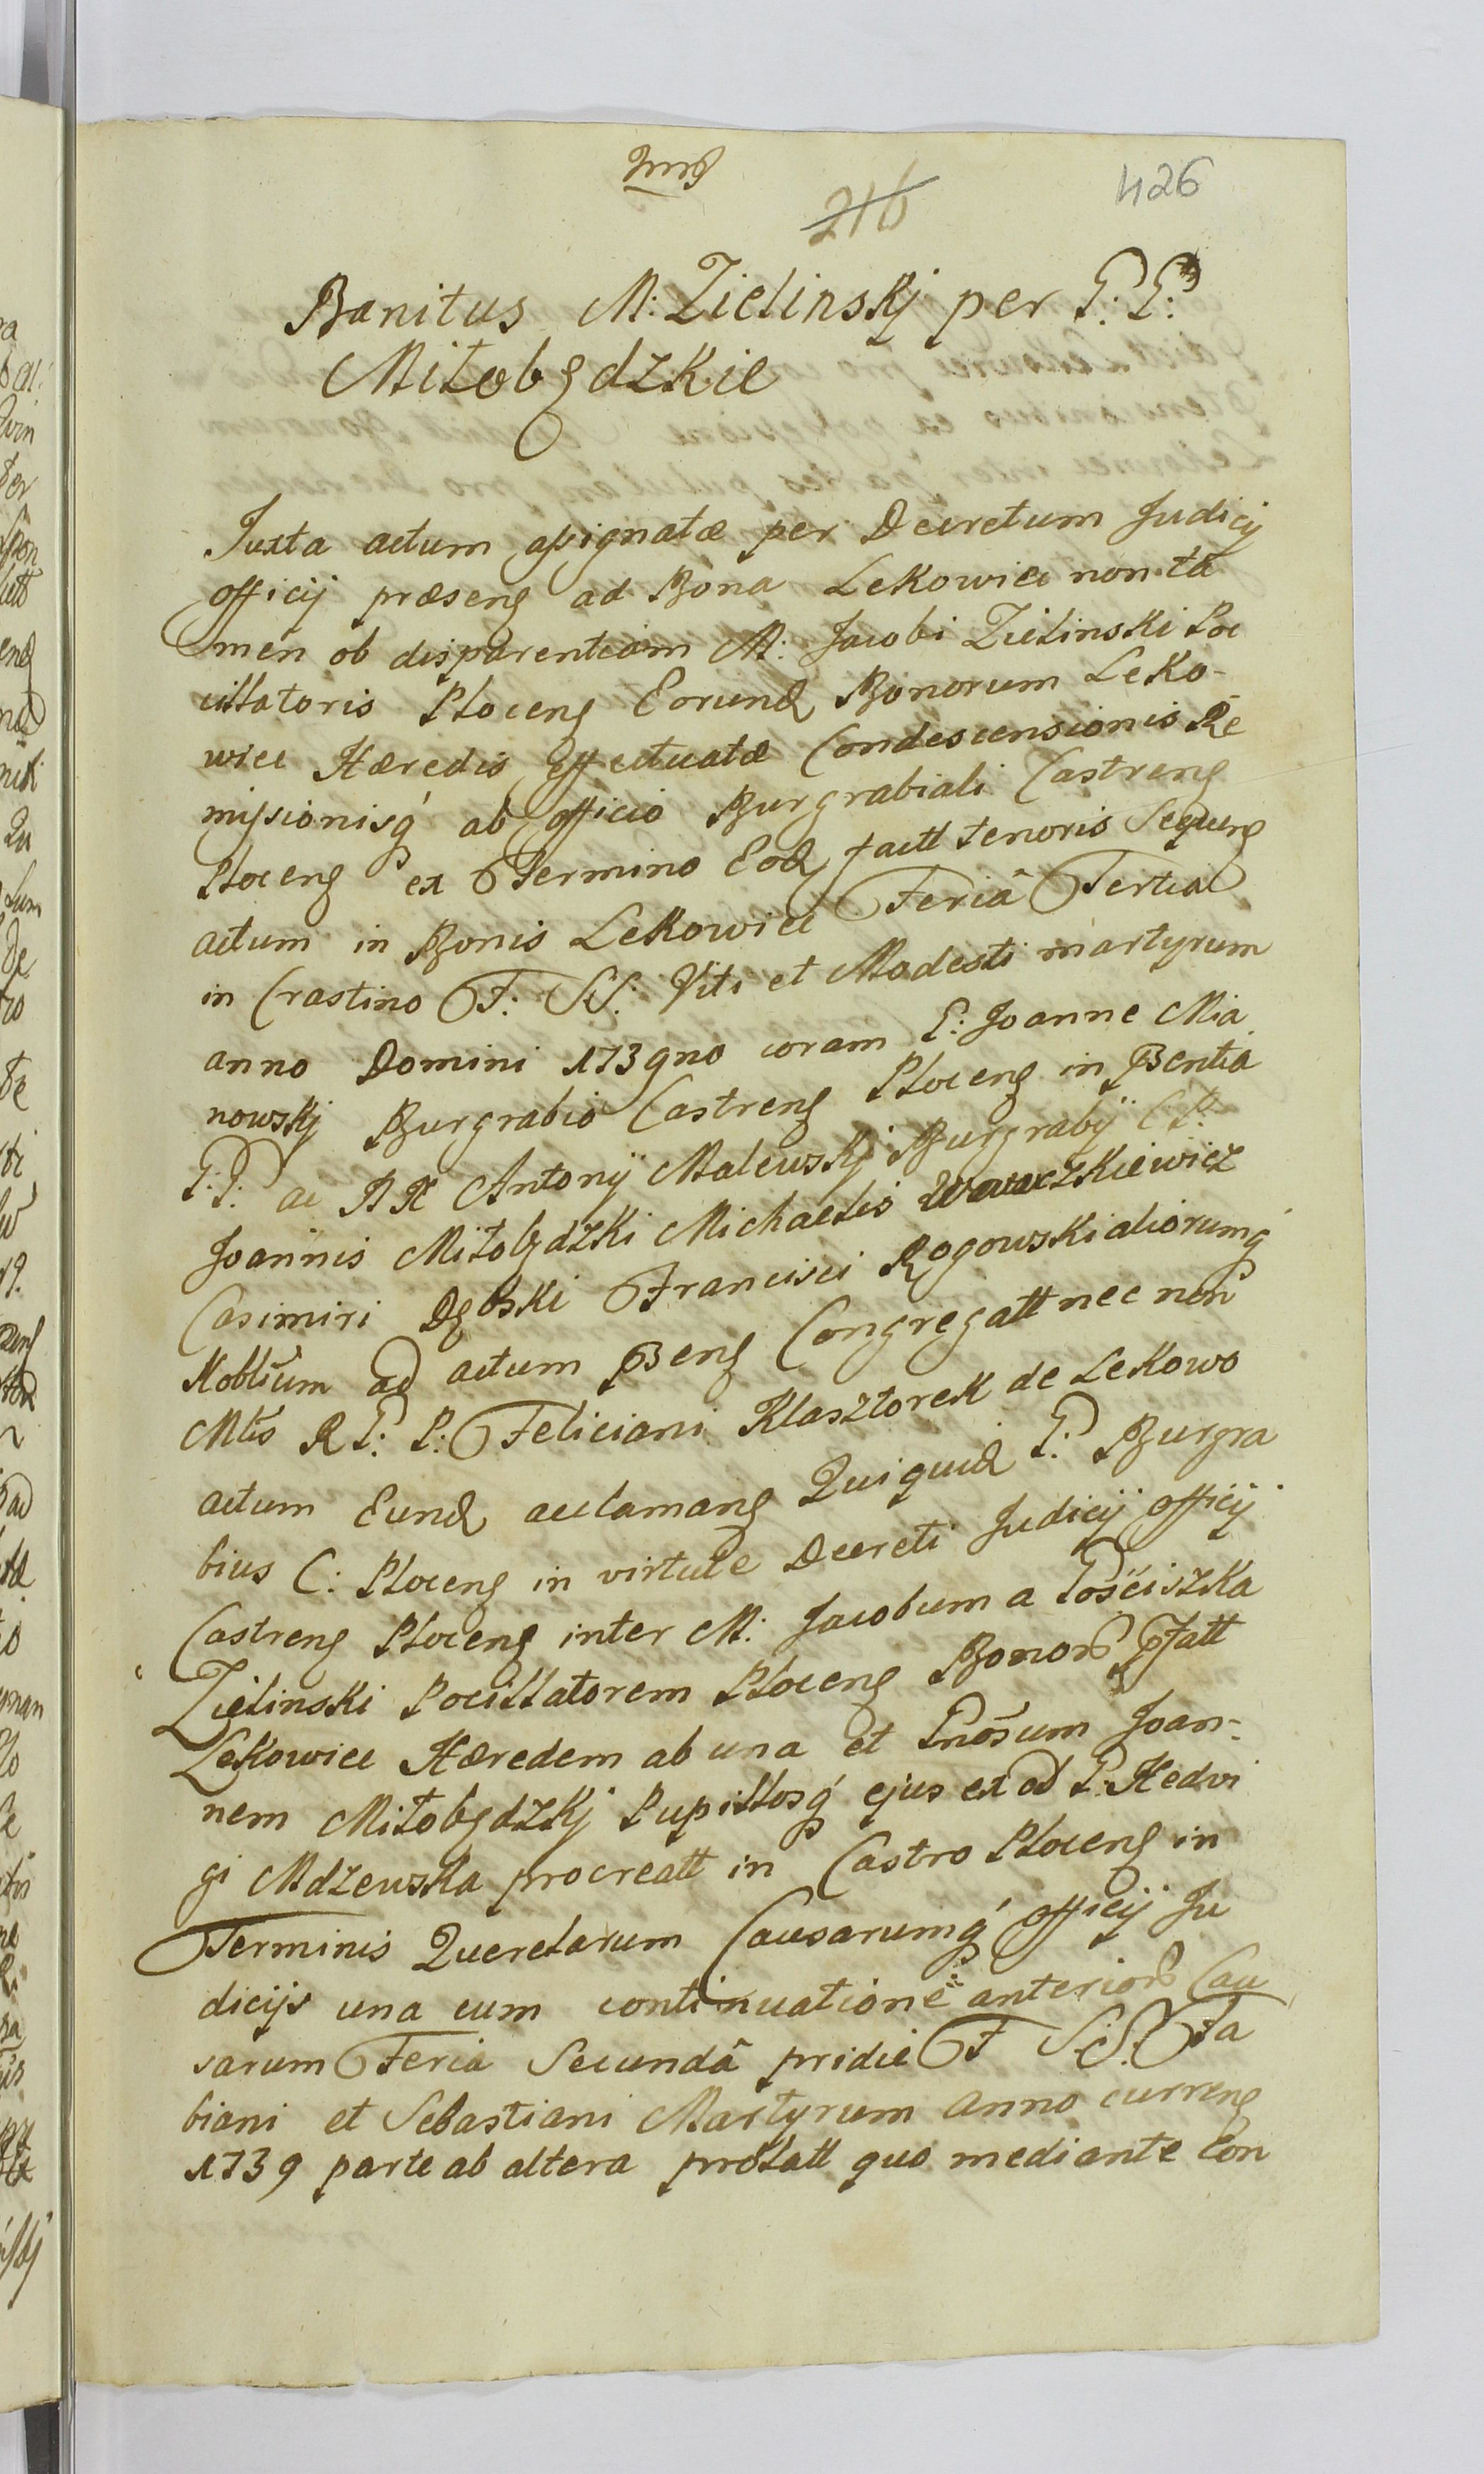 216
426
Banitus M: Zielinskj per G: G:
Miłobędzkie
Juxta actum assignatæ per Decretum Judicij
officij præseng ad Bona Lekowice non ta
men ob disparentiam M: Jacobi Zielinski Poc
cillatoris Ploceng Eorund Bonorum Leko-
wice Hæredis effectuatæ Condescensionis Re
missionisq́ ab officio Burgrabiali Castreng
Ploceng ex Termino Eod factt tenoris Sequeng
actum in Bonis Lekowice Feriâ Tertia
in Crastino F: SS: Viti et Modesti martyrum
anno Domini 1739no coram G: Joanne Mia
nowskj Burgrabio Castreng Ploceng in Psentia
G:G: ac NN Antonij Malewskj Burgrabij C P:
Joannis Miłobędzki Michaelis Wawrzkiewicz
Casimiri Dębski Francisci Rogowski aliorumq́
Nobliũm ad actum Pseng Congregatt nec non
Mltis R P: P: Feliciani Klasztorek de Lekowo
actum Eund acclamang Quiquid G: Burgra
bius C: Ploceng in virtute Decreti Judicij officij
Castreng Ploceng inter M: Jacobum a Gościszka
Zielinski Pocillatorem Ploceng Bonor Pfatt
Lekowice Hæredem ab una et Gnõsum Joan-
nem Miłobędzkj Pupillosq́ ejus ex od G: Hedvi
gi Mdzewska procreatt in Castro Ploceng in
Terminis Querelarum Causarumq́ officij Ju
dicijs una cum continuatione anterior Cau
sarum Feria Secundâ pridie F SS: Fa
biani et Sebastiani Martyrum anno curreng
1739 parte ab altera prolatt quo mediante Con